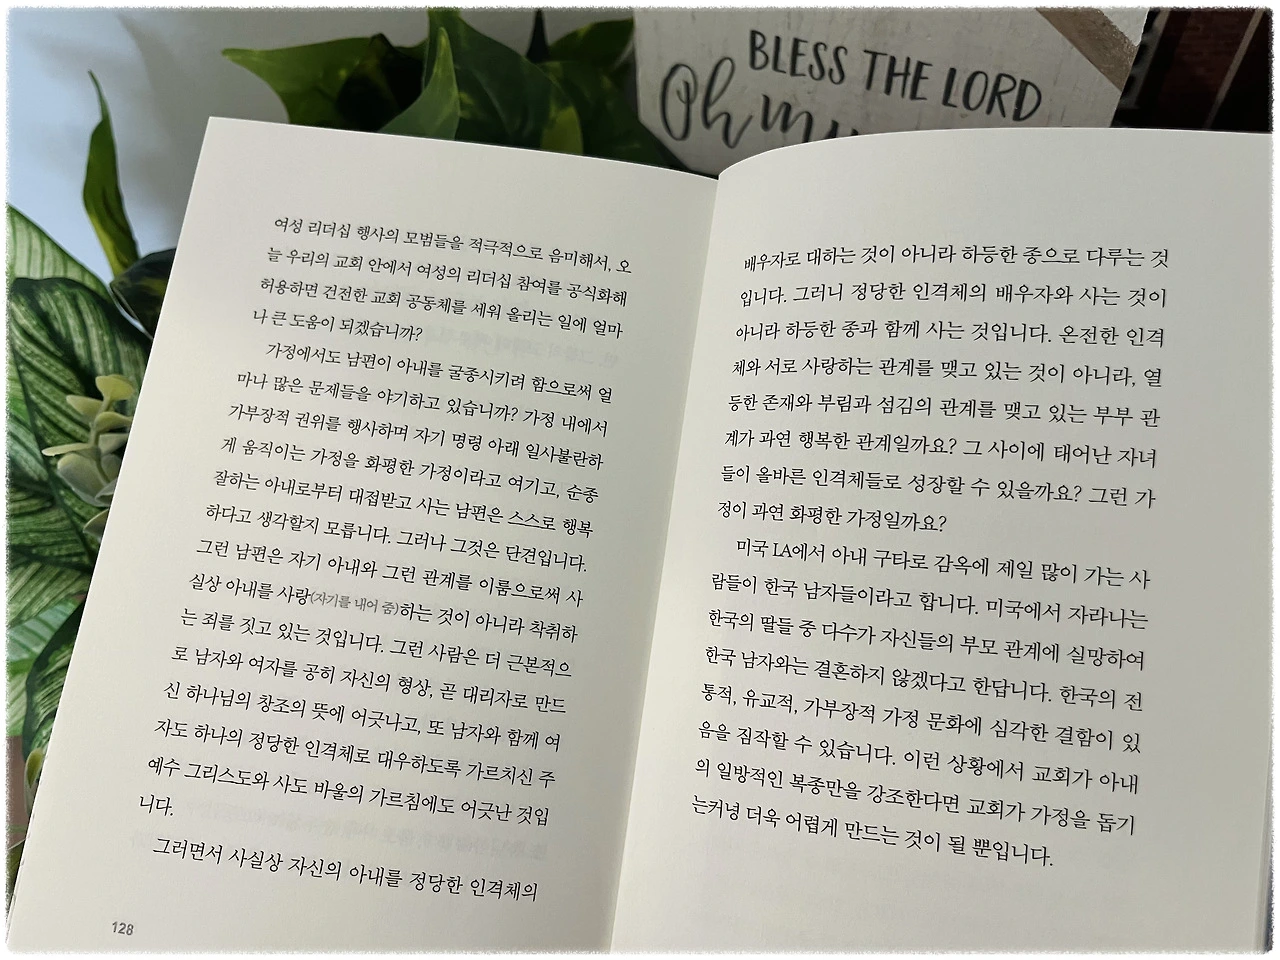 BLESS THE LORD
Oh my
여성 리더십 행사의 모범들을 적극적으로 음미해서, 오
늘 우리의 교회 안에서 여성의 리더십 참여를 공식화해
허용하면 건전한 교회 공동체를 세워 올리는 일에 얼마
나 큰 도움이 되겠습니까?
가정에서도 남편이 아내를 굴종시키려 함으로써 얼
마나 많은 문제들을 야기하고 있습니까? 가정 내에서
가부장적 권위를 행사하며 자기 명령 아래 일사불란하
게 움직이는 가정을 화평한 가정이라고 여기고, 순종
잘하는 아내로부터 대접받고 사는 남편은 스스로 행복
하다고 생각할지 모릅니다. 그러나 그것은 단견입니다.
그런 남편은 자기 아내와 그런 관계를 이룸으로써 사
실상 아내를 사랑(자기를 내어 줌)하는 것이 아니라 착취하
는 죄를 짓고 있는 것입니다. 그런 사람은 더 근본적으
로 남자와 여자를 공히 자신의 형상, 곧 대리자로 만드
신 하나님의 창조의 뜻에 어긋나고, 또 남자와 함께 여
자도 하나의 정당한 인격체로 대우하도록 가르치신 주
예수 그리스도와 사도 바울의 가르침에도 어긋난 것입
니다.
그러면서 사실상 자신의 아내를 정당한 인격체의
128
배우자로 대하는 것이 아니라 하등한 종으로 다루는 것
입니다. 그러니 정당한 인격체의 배우자와 사는 것이
아니라 하등한 종과 함께 사는 것입니다. 온전한 인격
체와 서로 사랑하는 관계를 맺고 있는 것이 아니라, 열
등한 존재와 부림과 섬김의 관계를 맺고 있는 부부 관
계가 과연 행복한 관계일까요? 그 사이에 태어난 자녀
들이 올바른 인격체들로 성장할 수 있을까요? 그런 가
정이 과연 화평한 가정일까요?
미국 LA에서 아내 구타로 감옥에 제일 많이 가는 사
람들이 한국 남자들이라고 합니다. 미국에서 자라나는
한국의 딸들 중 다수가 자신들의 부모 관계에 실망하여
한국 남자와는 결혼하지 않겠다고 한답니다. 한국의 전
통적, 유교적, 가부장적 가정 문화에 심각한 결함이 있
음을 짐작할 수 있습니다. 이런 상황에서 교회가 아내
의 일방적인 복종만을 강조한다면 교회가 가정을 돕기
는커녕 더욱 어렵게 만드는 것이 될 뿐입니다.